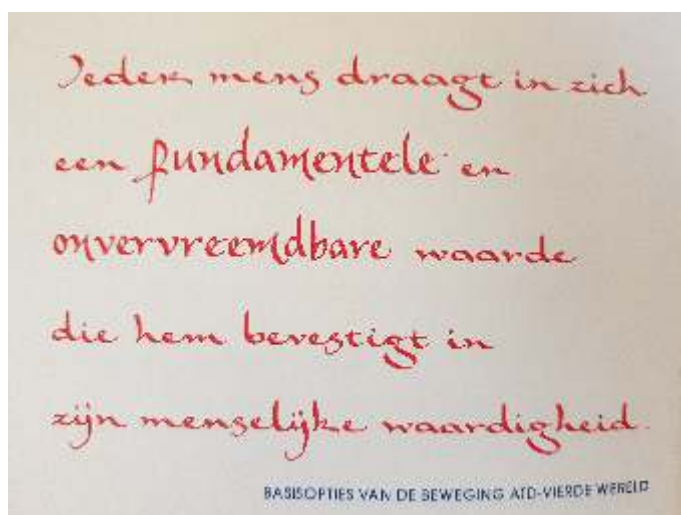 Ieder mens draagt in zich
een fundamentele en
onvervreemdbare waarde
die hem bevestigt in
zijn menselijke waardigheid.
BASISOPTIES VAN DE BEWEGING ATD-VIERDE WERELD